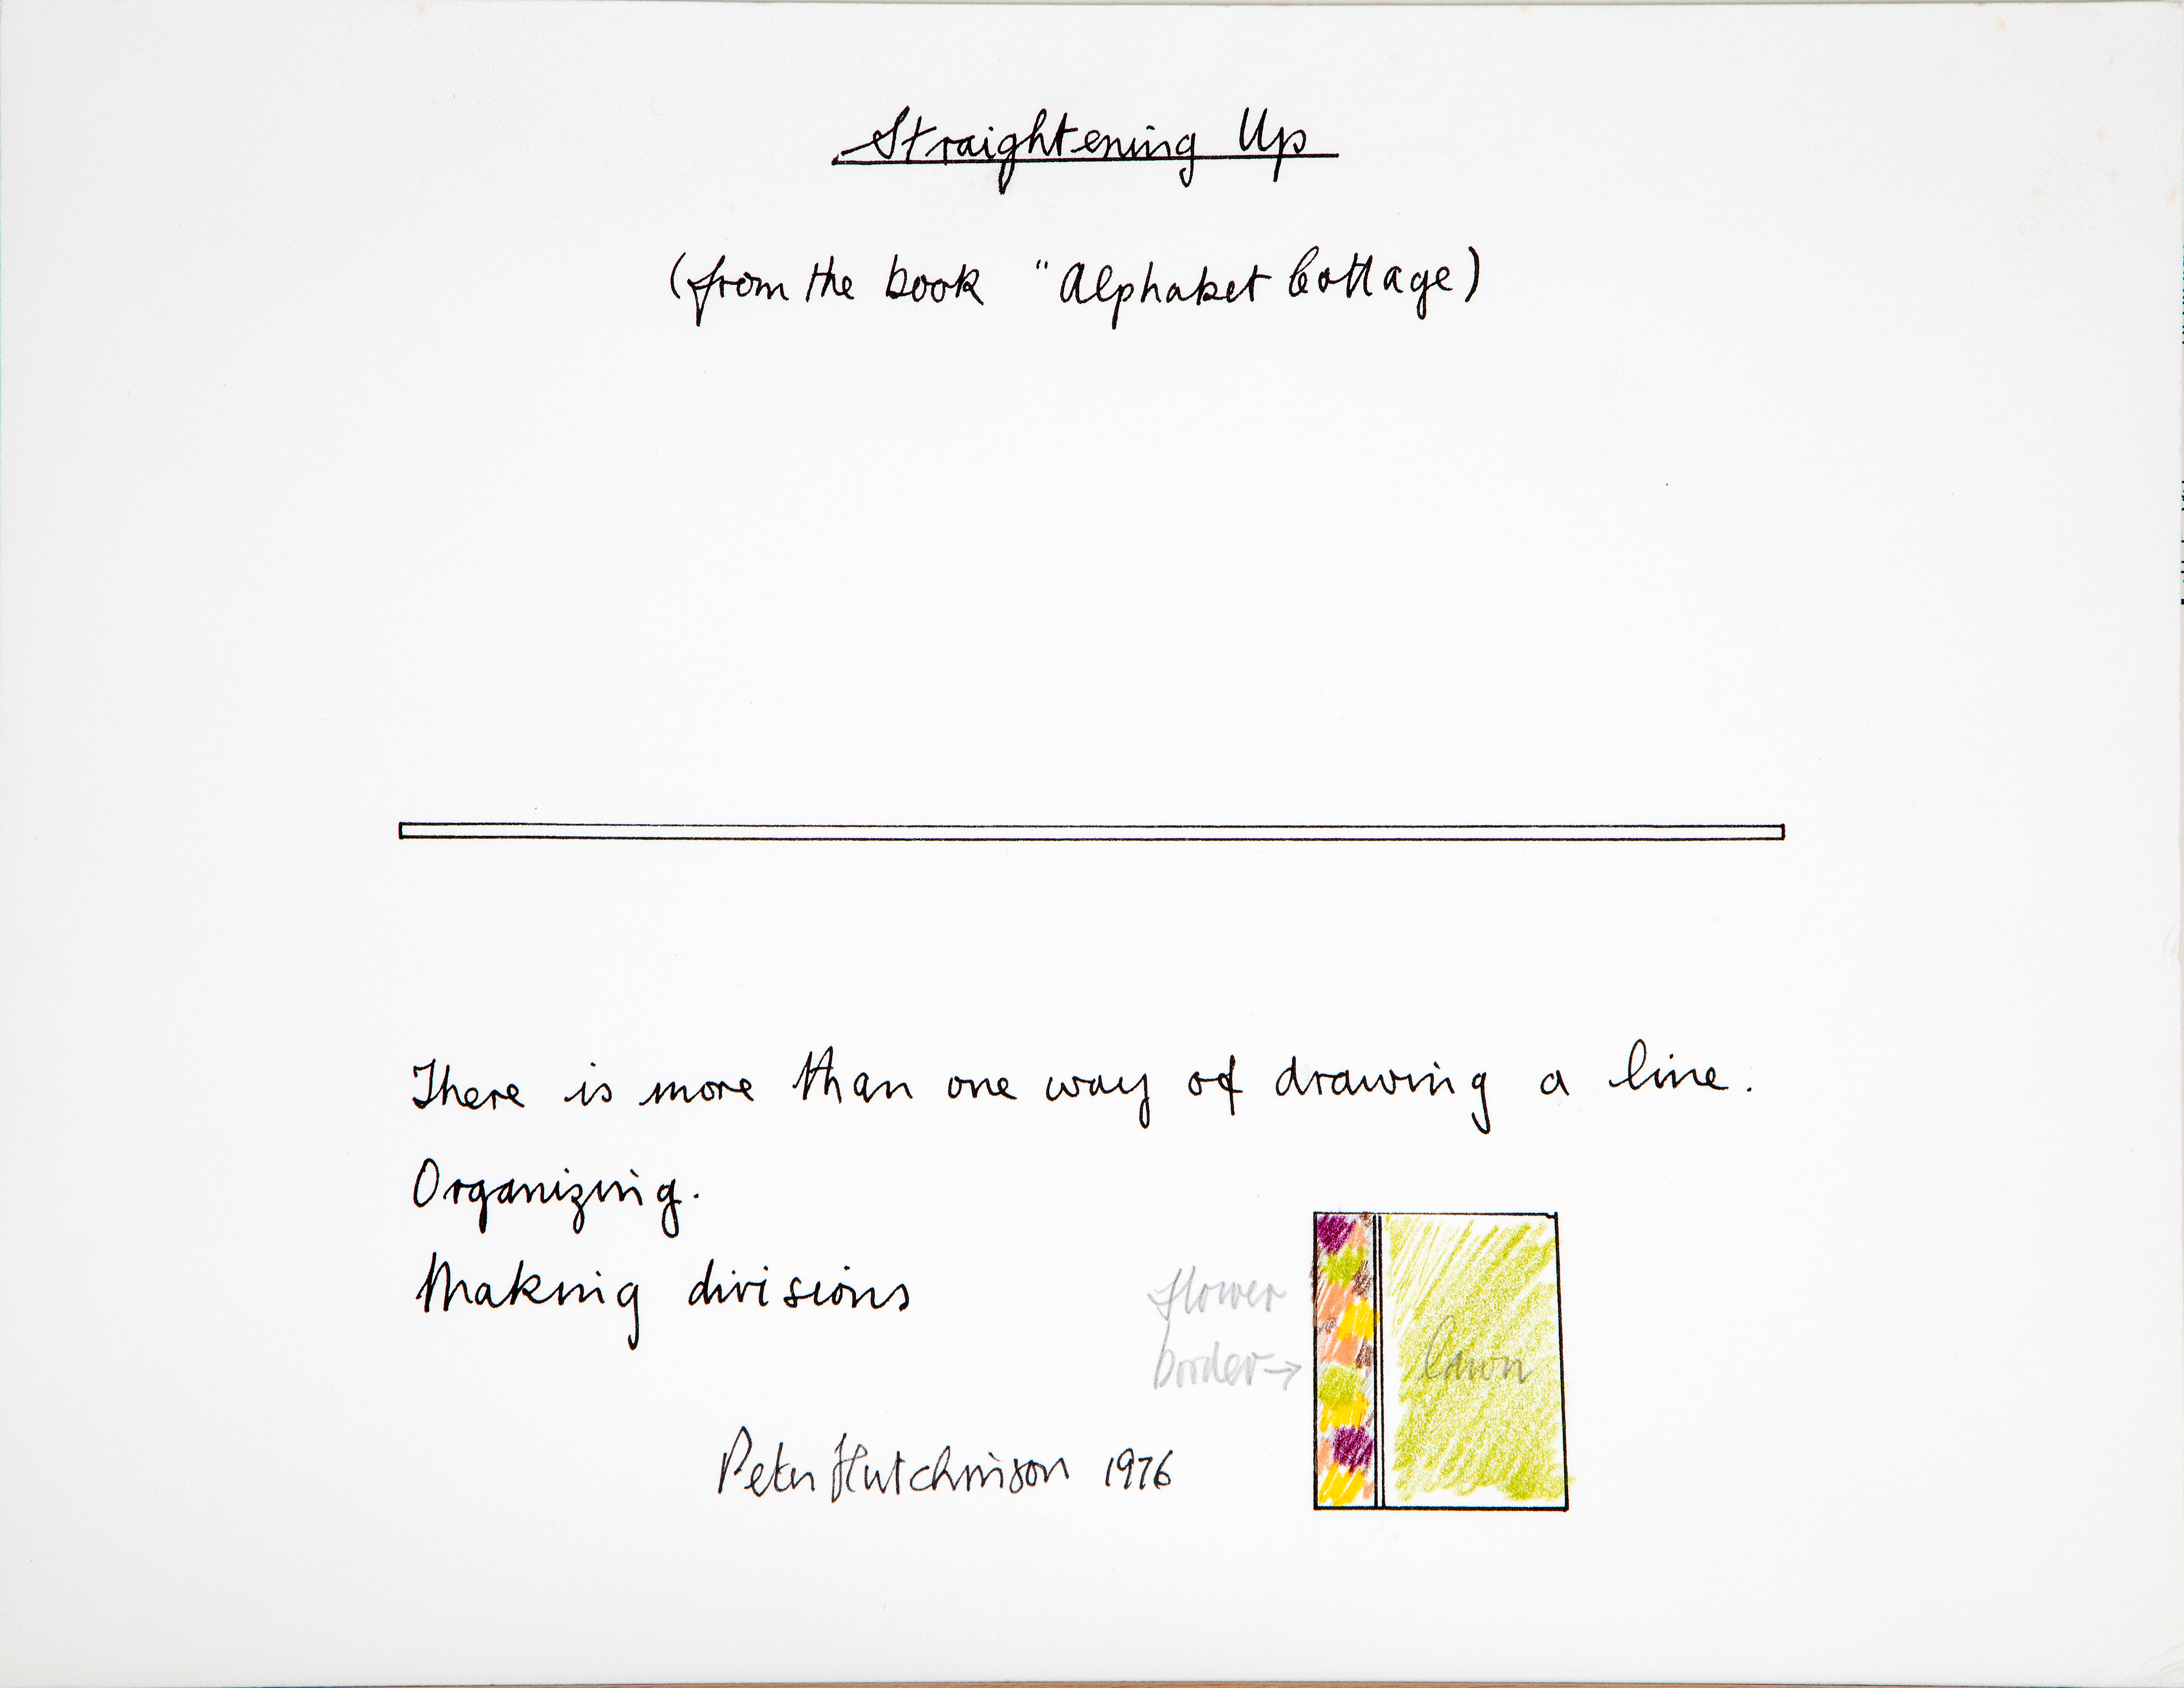 Straightening Up
(from the book "Alphabet Cottage)
There is more than one way of drawing a line.
Organizing.
Making divisions
flower
border→
lawn
Peter Hutchinson 1976